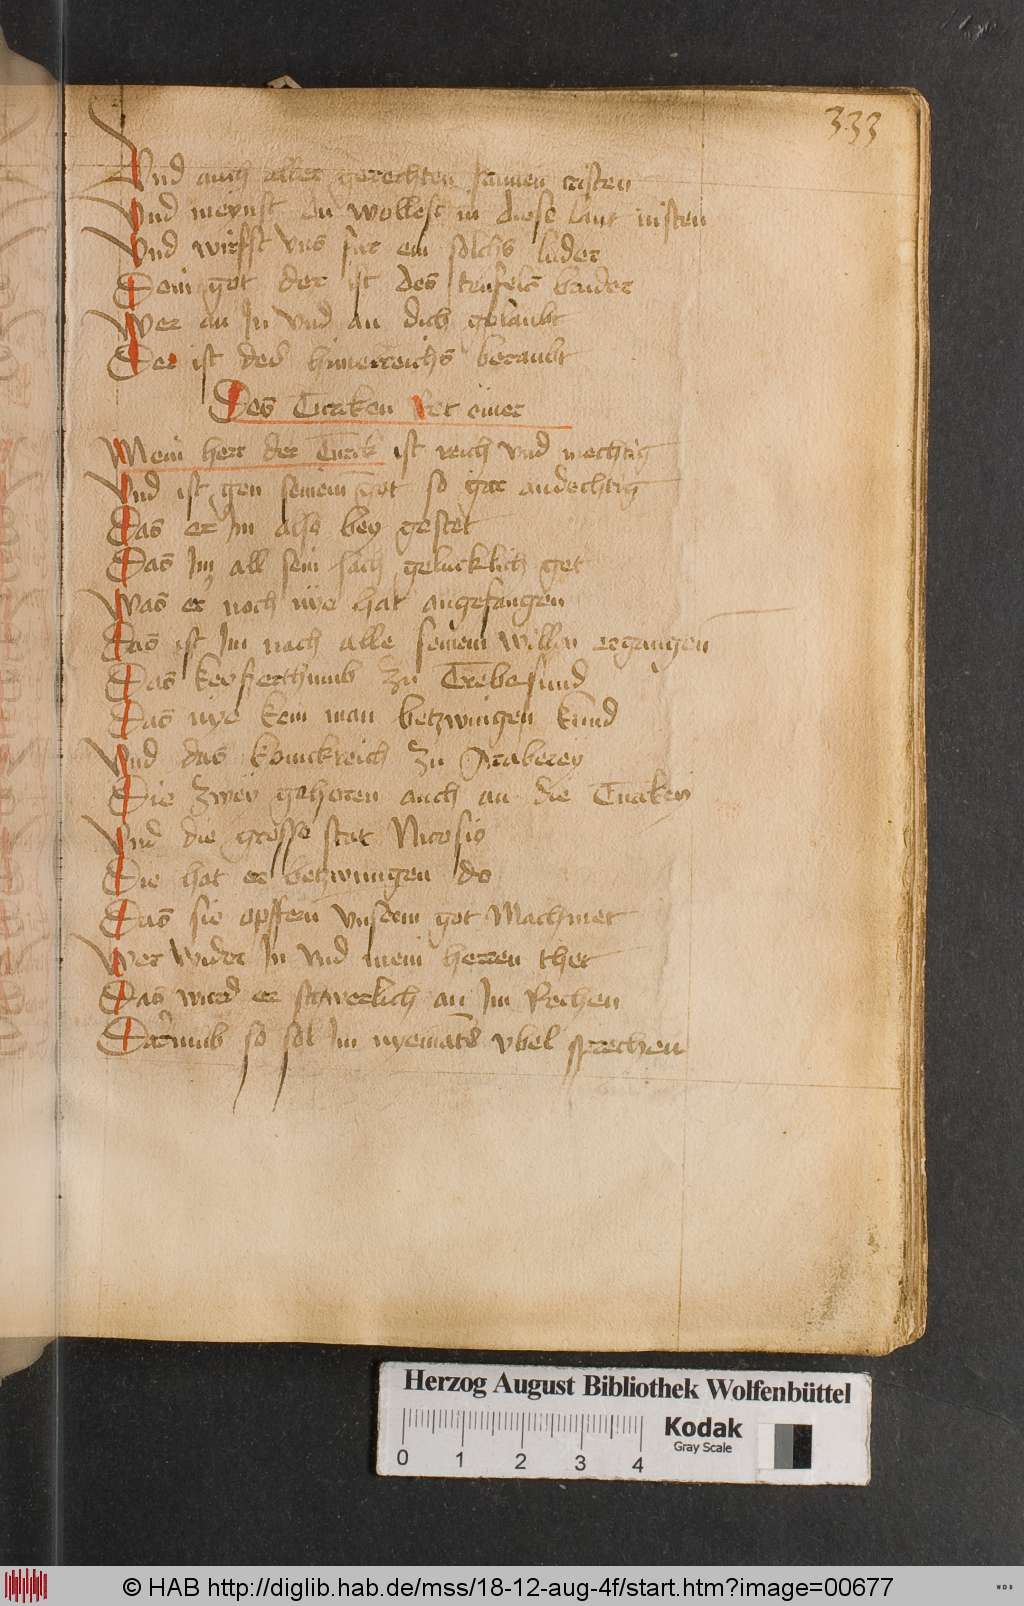 333
Vnd auch aller gerechten frumen cristen
Vnd meynst du wollest in diese lant nisten
Vnd wirffst vns fur ein solchs luder
Dein got der ist des teufels bruder
Wer an In vnd an dich gelaubt
Der ist des himelreichs beraubt
Des Turken Ret einer
Mein herr der Turck ist reich vnd mechtig
Vnd ist gen seinem got so gar andechtig
Das er Im also bey gestet
Das Im all sein sach gelucklich get
Was er noch nye hat angefangen
Das ist Im nach alle seinem willen ergangen
Das keyserthumb zu Trebesund
Das nye kein man betzwingen kund
Vnd das konickreich zu Araberey
Die zwey gehoren auch an die Turkey
Vnd die grosse stat Nicosio
Die hat er betzwungen do
Das sie opffern vnserm got Machmet
Wer wider In vnd mein herren thet
Das wird er swerlich an Im Rechen
Darumb so sol Im nyemats vbel sprechen
Herzog August Bibliothek Wolfenbüttel
0 1 2 3 4
Kodak
Gray Scale
© HAB http://diglib.hab.de/mss/18-12-aug-4f/start.htm?image=00677